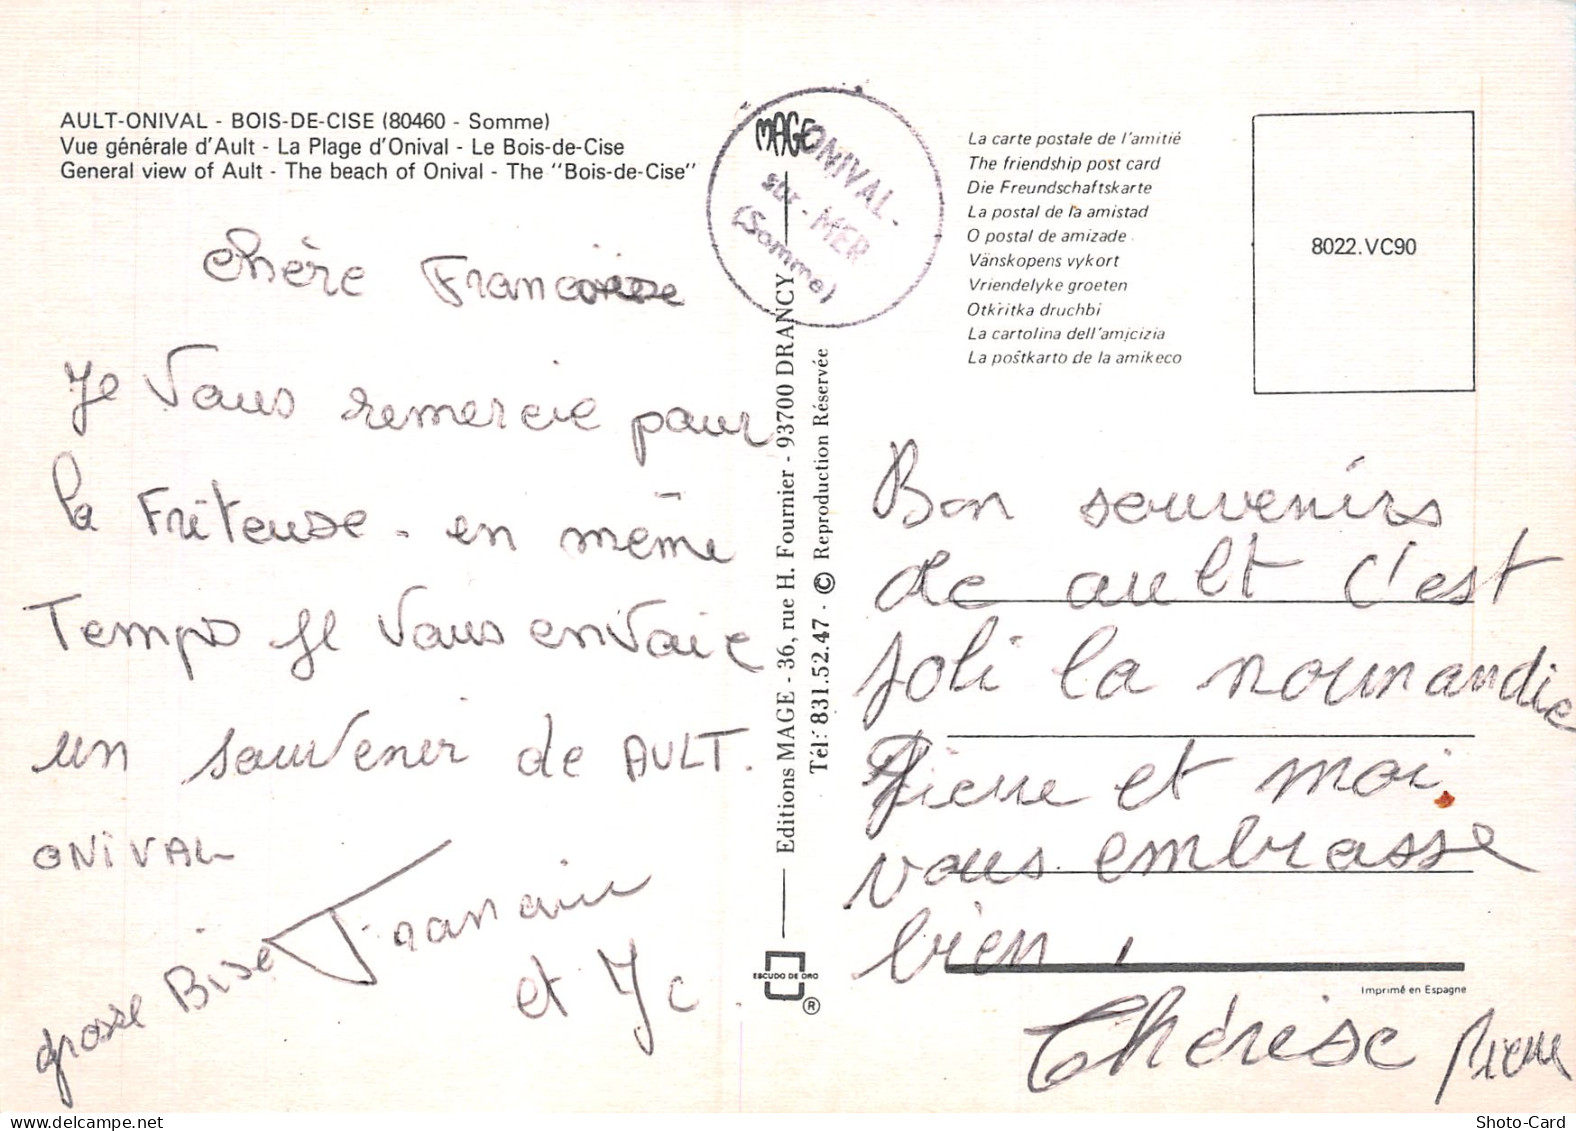 AULT-ONIVAL - BOIS-DE-CISE (80460 - Somme)
Vue générale d'Ault - La Plage d'Onival - Le Bois-de-Cise
General view of Ault - The beach of Onival - The "Bois-de-Cise"
chère Francoise
Je Vous remercie pour
la Friteuse - en même
Temps Je Vous envoie
un souvenir de AULT.
ONIVAL
grosse Bise
et Jc
MAGE
ONIVAL-
sur-MER
(Somme)
Editions MAGE - 36, rue H. Fournier - 93700 DRANCY
Tél: 831.52.47 - © Reproduction Réservée
ESCUDO DE ORO
®
La carte postale de l'amitié
The friendship post card
Die Freundschaftskarte
La postal de la amistad
O postal de amizade
Vänskopens vykort
Vriendelyke groeten
Otkritka druchbi
La cartolina dell'amicizia
La poŝtkarto de la amikeco
8022.VC90
Bon souvenirs
de ault c'est
joli la nourmandie
Pierre et moi
vous embrasse
bien,
Imprimé en Espagne
Thérèse Pierre
Shoto-Card